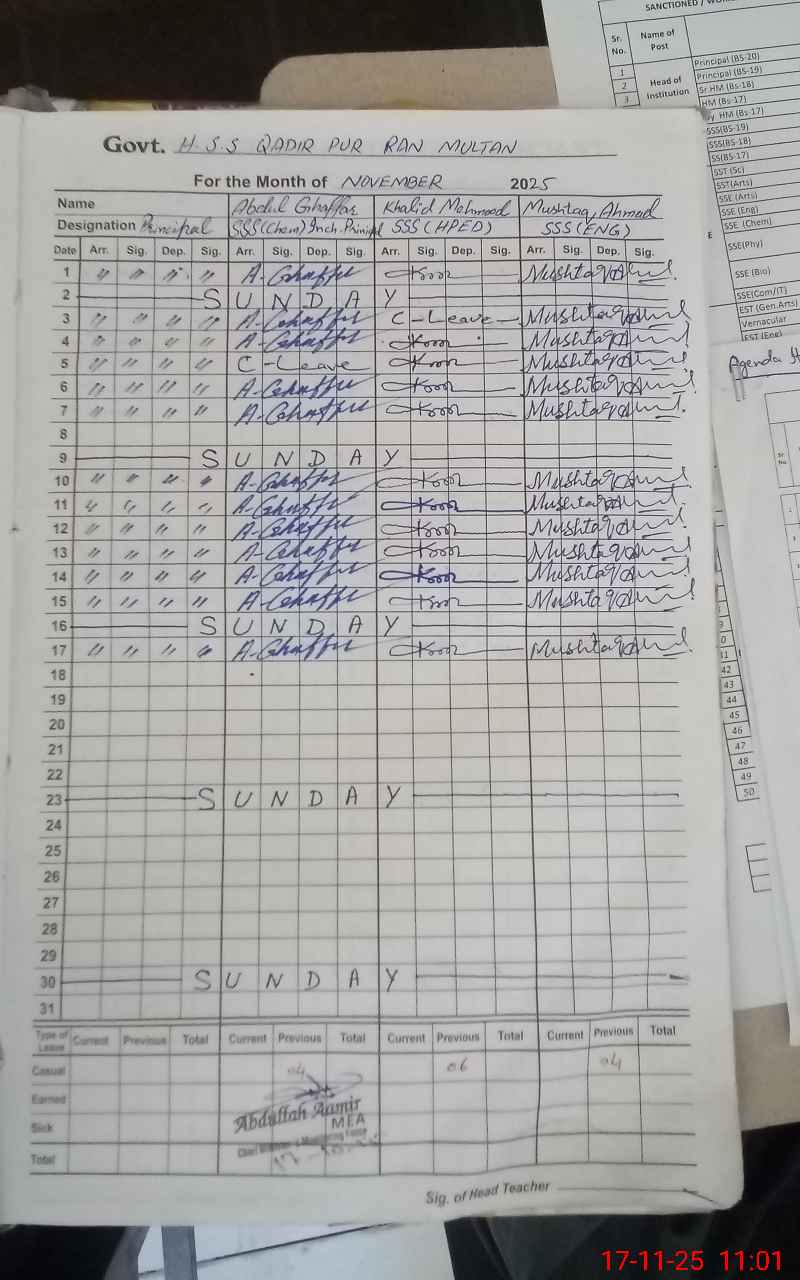 SANCTIONED /
Sr. No. Name of Post
1 Principal (BS-20)
2 Head of Institution Principal (BS-19)
3 Sr HM (Bs-18)
HM (Bs-17)
HM (Bs-17)
SSS(BS-19)
SSS(BS-18)
SS(BS-17)
SST (Sc)
SST(Arts)
SSE (Arts)
SSE (Eng)
SSE (Chem)
SSE(Phy)
SSE (Bio)
SSE(Com/IT)
EST (Gen.Arts)
Vernacular
EST (Eng)
Agenda
Sr. No
Govt. H.S.S QADIR PUR RAN MULTAN
For the Month of NOVEMBER 2025
Name Abdul Ghaffar Khalid Mehmood Mushtaq Ahmad
Designation Principal SSS(Chem) Inch. Principal SSS (HPED) SSS(ENG)
Date Arr. Sig. Dep. Sig. Arr. Sig. Dep. Sig. Arr. Sig. Dep. Sig. Arr. Sig. Dep. Sig.
1 〃 〃 〃 〃 A-Ghaffar
2 SUNDAY
3 〃 〃 〃 〃 A-Ghaffar C-Leave
4 〃 〃 〃 〃 A-Ghaffar
5 〃 〃 〃 〃 C-Leave
6 〃 〃 〃 〃 A-Ghaffar
7 〃 〃 〃 〃 A-Ghaffar
8
9 SUNDAY
10 〃 〃 〃 〃 A-Ghaffar
11 〃 〃 〃 〃 A-Ghaffar
12 〃 〃 〃 〃 A-Ghaffar
13 〃 〃 〃 〃 A-Ghaffar
14 〃 〃 〃 〃 A-Ghaffar
15 〃 〃 〃 〃 A-Ghaffar
16 SUNDAY
17 〃 〃 〃 〃 A-Ghaffar
18
19
20
21
22
23 SUNDAY
24
25
26
27
28
29
30 SUNDAY
31
Type of Leave Current Previous Total Current Previous Total Current Previous Total Current Previous Total
Casual 04 06 04
Earned
Sick
Total
Abdullah Aamir
MEA
Sig. of Head Teacher
42
43
44
45
46
47
48
49
50
17-11-25 11:01